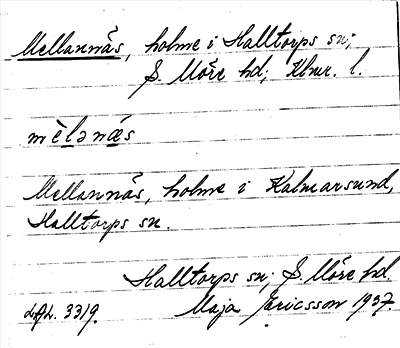 Mellannäs, holme i Halltorps sn;
S. Möre hd; Klmr. l.
mèlənæs
Mellannäs, holme i Kalmarsund,
Halltorps sn.
Halltorps sn; S. Möre hd
3319. Maja Ericsson 1937.